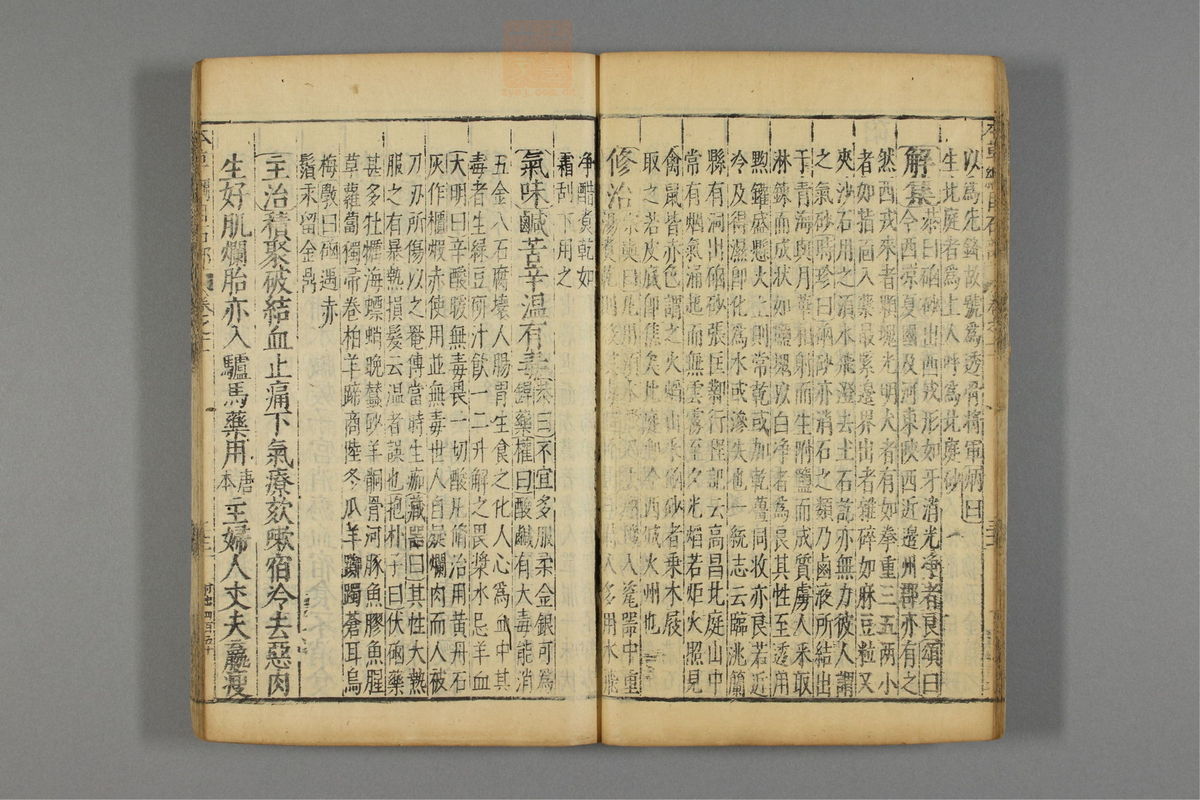 以爲先鋒故號爲透骨將軍炳曰
生北庭者爲上人呼爲北庭砂
解集恭曰硇砂出西戎形如牙消光淨者良頌曰
今西涼夏國及河東陝西近邊州郡亦有之
然西戎來者顆塊光明大者有如拳重三五兩小
者如指面入藥最緊邊界出者雜碎如麻豆粒又
夾沙石用之須水飛澄去土石訖亦無力彼人謂
之氣砂時珍曰硇砂亦消石之類乃鹵液所結出
于青海與月華相射而生附鹽而成質虜人采取
淋鍊而成狀如鹽塊以白淨者爲良其性至透用
黝罐盛懸火上則常乾或加乾薑同收亦良若近
冷及得濕即化爲水或滲失也一統志云臨洮蘭
縣有洞出硇砂張匡鄴行程記云高昌北庭山中
常有烟氣涌起而無雲霧至夕光熖若炬火照見
禽鼠皆赤色謂之火熖山采硇砂者乘木屐
取之若皮底即焦矣北庭即今西域火州也
修治宗奭曰凡用須水飛過入瓷器中重
湯煮其器
淨醋煮乾如
霜刮下用之
氣味鹹苦辛温有毒恭曰不宜多服柔金銀可爲
銲藥權曰酸鹹有大毒能消
五金八石腐壞人腸胃生食之化人心爲血中其
毒者生綠豆研汁飲一二升解之畏漿水忌羊血
大明曰辛酸暖無毒畏一切酸凡脩治用黄丹石
灰作櫃煅赤使用並無毒世人自疑爛肉而人被
刀刃所傷以之罨傅當時生痂藏器曰其性大熱
服之有暴熱損髮云温者誤也抱朴子曰伏硇藥
甚多牡蠣海螵蛸晚蠶砂羊䯊骨河豚魚膠魚腥
草蘿蔔獨帚卷柏羊蹄商陸冬瓜羊躑躅蒼耳烏
梅斆曰硇遇赤
鬚汞留金鼎
主治積聚破結血止痛下氣療欬嗽宿冷去惡肉
生好肌爛胎亦入驢馬藥用唐本主婦人丈夫羸瘦